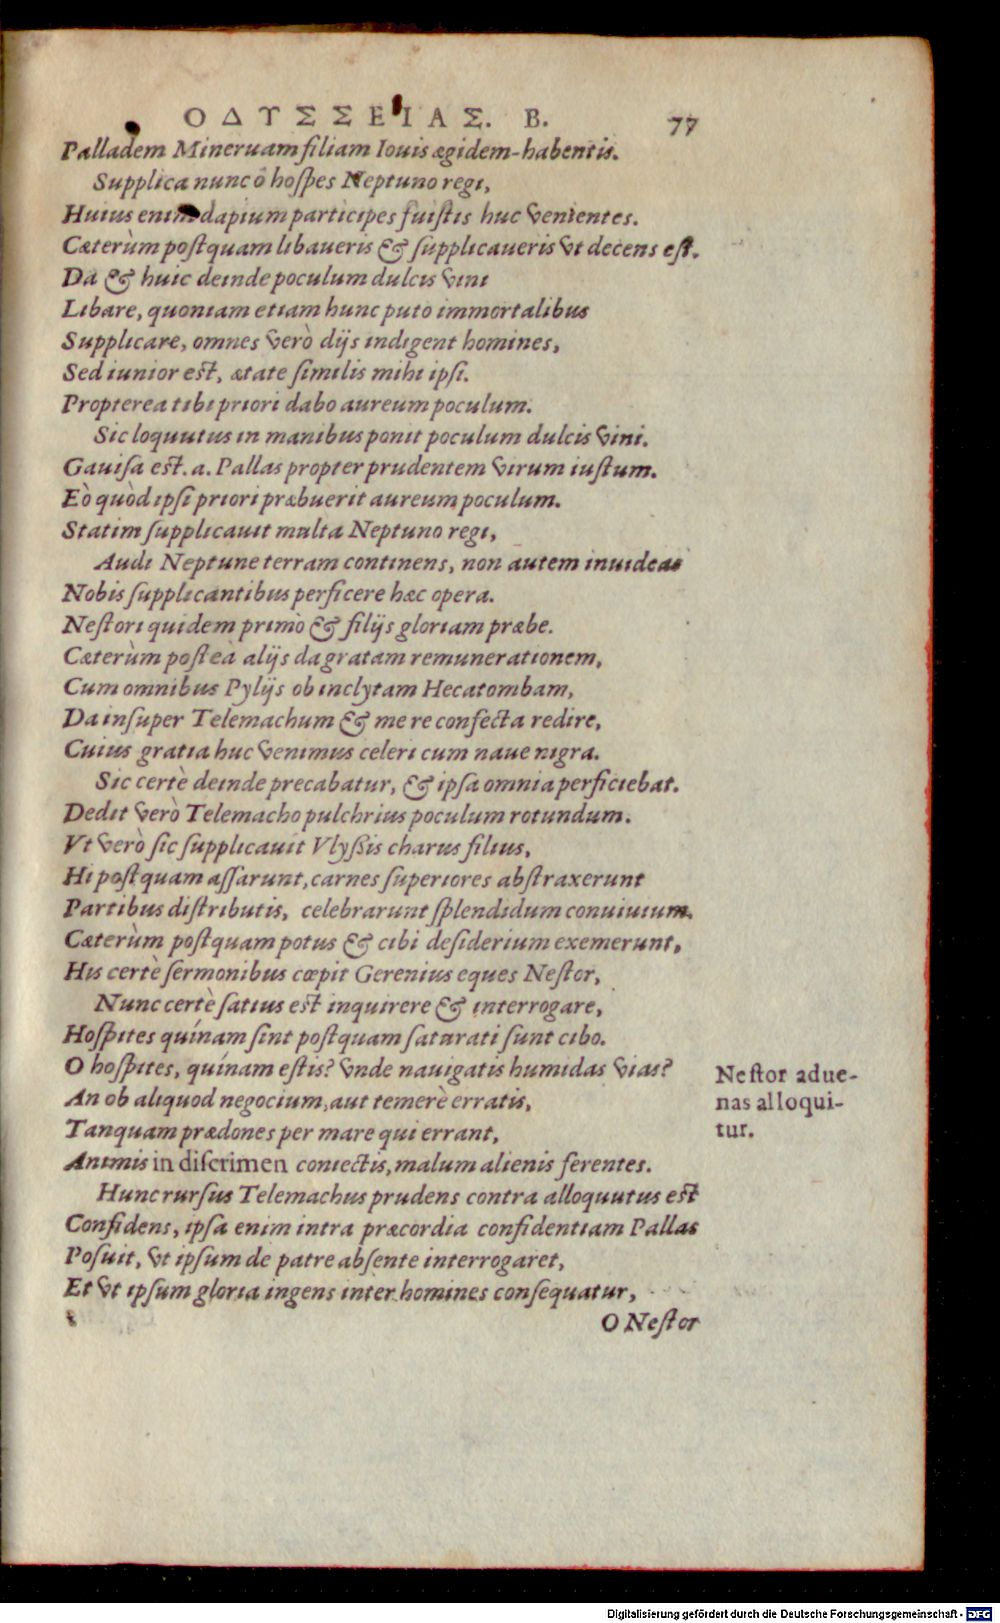 ΟΔΥΣΣΕΙΑΣ. Β. 77
Palladem Mineruam filiam Iouis ægidem-habentis.
Supplica nunc ô hoſpes Neptuno regi,
Huius enim dapium participes fuiſtis huc venientes.
Cæterùm poſtquam libaueris & ſupplicaueris vt decens eſt.
Da & huic deinde poculum dulcis vini
Libare, quoniam etiam hunc puto immortalibus
Supplicare, omnes verò dijs indigent homines,
Sed iunior eſt, ætate ſimilis mihi ipſi.
Propterea tibi priori dabo aureum poculum.
Sic loquutus in manibus ponit poculum dulcis vini.
Gauiſa eſt. a. Pallas propter prudentem virum iuſtum.
Eò quòd ipſi priori præbuerit aureum poculum.
Statim ſupplicauit multa Neptuno regi,
Audi Neptune terram continens, non autem inuideas
Nobis ſupplicantibus perficere hæc opera.
Neſtori quidem primò & filijs gloriam præbe.
Cæterùm poſteà alijs da gratam remunerationem,
Cum omnibus Pylijs ob inclytam Hecatombam,
Da inſuper Telemachum & me re confecta redire,
Cuius gratia huc venimus celeri cum naue nigra.
Sic certè deinde precabatur, & ipſa omnia perficiebat.
Dedit verò Telemacho pulchrius poculum rotundum.
Vt verò ſic ſupplicauit Vlyßis charus filius,
Hi poſtquam aſſarunt, carnes ſuperiores abſtraxerunt
Partibus diſtributis, celebrarunt ſplendidum conuiuium.
Cæterùm poſtquam potus & cibi deſiderium exemerunt,
His certè ſermonibus cœpit Gerenius eques Neſtor,
Nunc certè ſatius eſt inquirere & interrogare,
Hoſpites quínam ſint poſtquam ſaturati ſunt cibo.
O hoſpites, quínam eſtis? vnde nauigatis humidas vias?
An ob aliquod negocium, aut temerè erratis,
Tanquam prædones per mare qui errant,
Animis in diſcrimen coniectis, malum alienis ferentes.
Hunc rurſus Telemachus prudens contra alloquutus eſt
Confidens, ipſa enim intra præcordia confidentiam Pallas
Poſuit, vt ipſum de patre abſente interrogaret,
Et vt ipſum gloria ingens inter homines conſequatur,
O Neſtor
Neſtor adue-
nas alloqui-
tur.
Digitalisierung gefördert durch die Deutsche Forschungsgemeinschaft - DFG